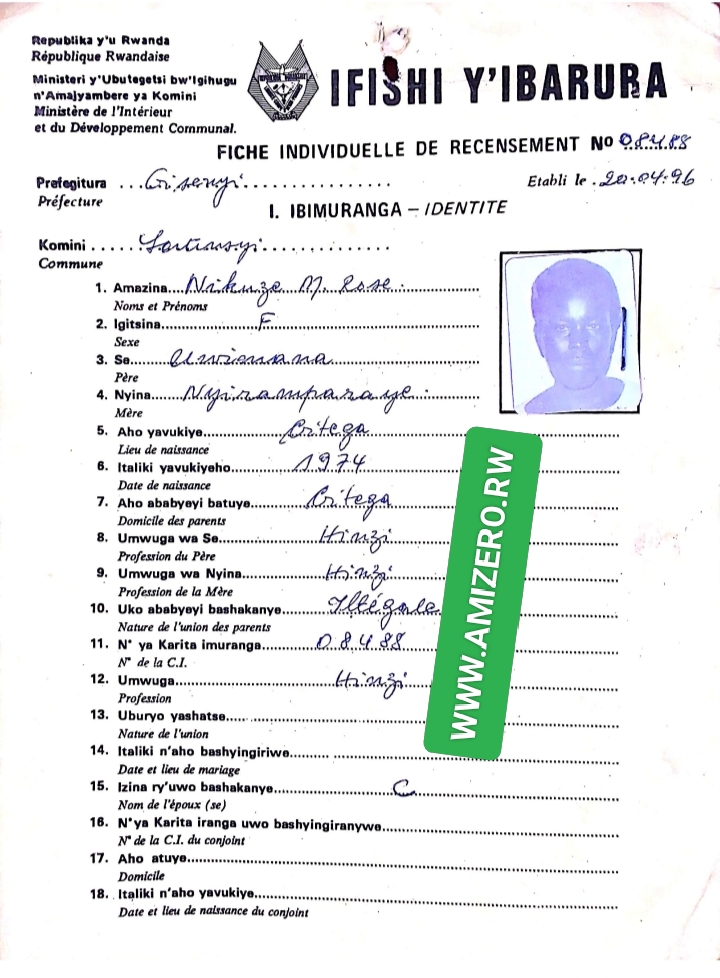 Republika y'u Rwanda
République Rwandaise
Ministeri y'Ubutegetsi bw'Igihugu
n'Amajyambere ya Komini
Ministère de l'Intérieur
et du Développement Communal.
IFISHI Y'IBARURA
FICHE INDIVIDUELLE DE RECENSEMENT No 08488
Prefegitura ...Gisenyi................
Préfecture
Etabli le .20.04.96
I. IBIMURANGA – IDENTITE
Komini ..... ................
Commune
1. Amazina...Nikuze M. Rose.
Noms et Prénoms
2. Igitsina...F
Sexe
3. Se...Uwimana
Père
4. Nyina...Nyiramparaye.
Mère
5. Aho yavukiye...Gitega
Lieu de naissance
6. Italiki yavukiyeho...1974
Date de naissance
7. Aho ababyeyi batuye...Gitega
Domicile des parents
8. Umwuga wa Se...Hinzi
Profession du Père
9. Umwuga wa Nyina...Hinzi
Profession de la Mère
10. Uko ababyeyi bashakanye...Illégale
Nature de l'union des parents
11. N° ya Karita imuranga...08488
N° de la C.I.
12. Umwuga...Hinzi
Profession
13. Uburyo yashatse...
Nature de l'union
14. Italiki n'aho bashyingiriwe...
Date et lieu de mariage
15. Izina ry'uwo bashakanye...C
Nom de l'époux (se)
16. N°ya Karita iranga uwo bashyingiranywe...
N° de la C.I. du conjoint
17. Aho atuye...
Domicile
18. Italiki n'aho yavukiye...
Date et lieu de naissance du conjoint
WWW.AMIZERO.RW